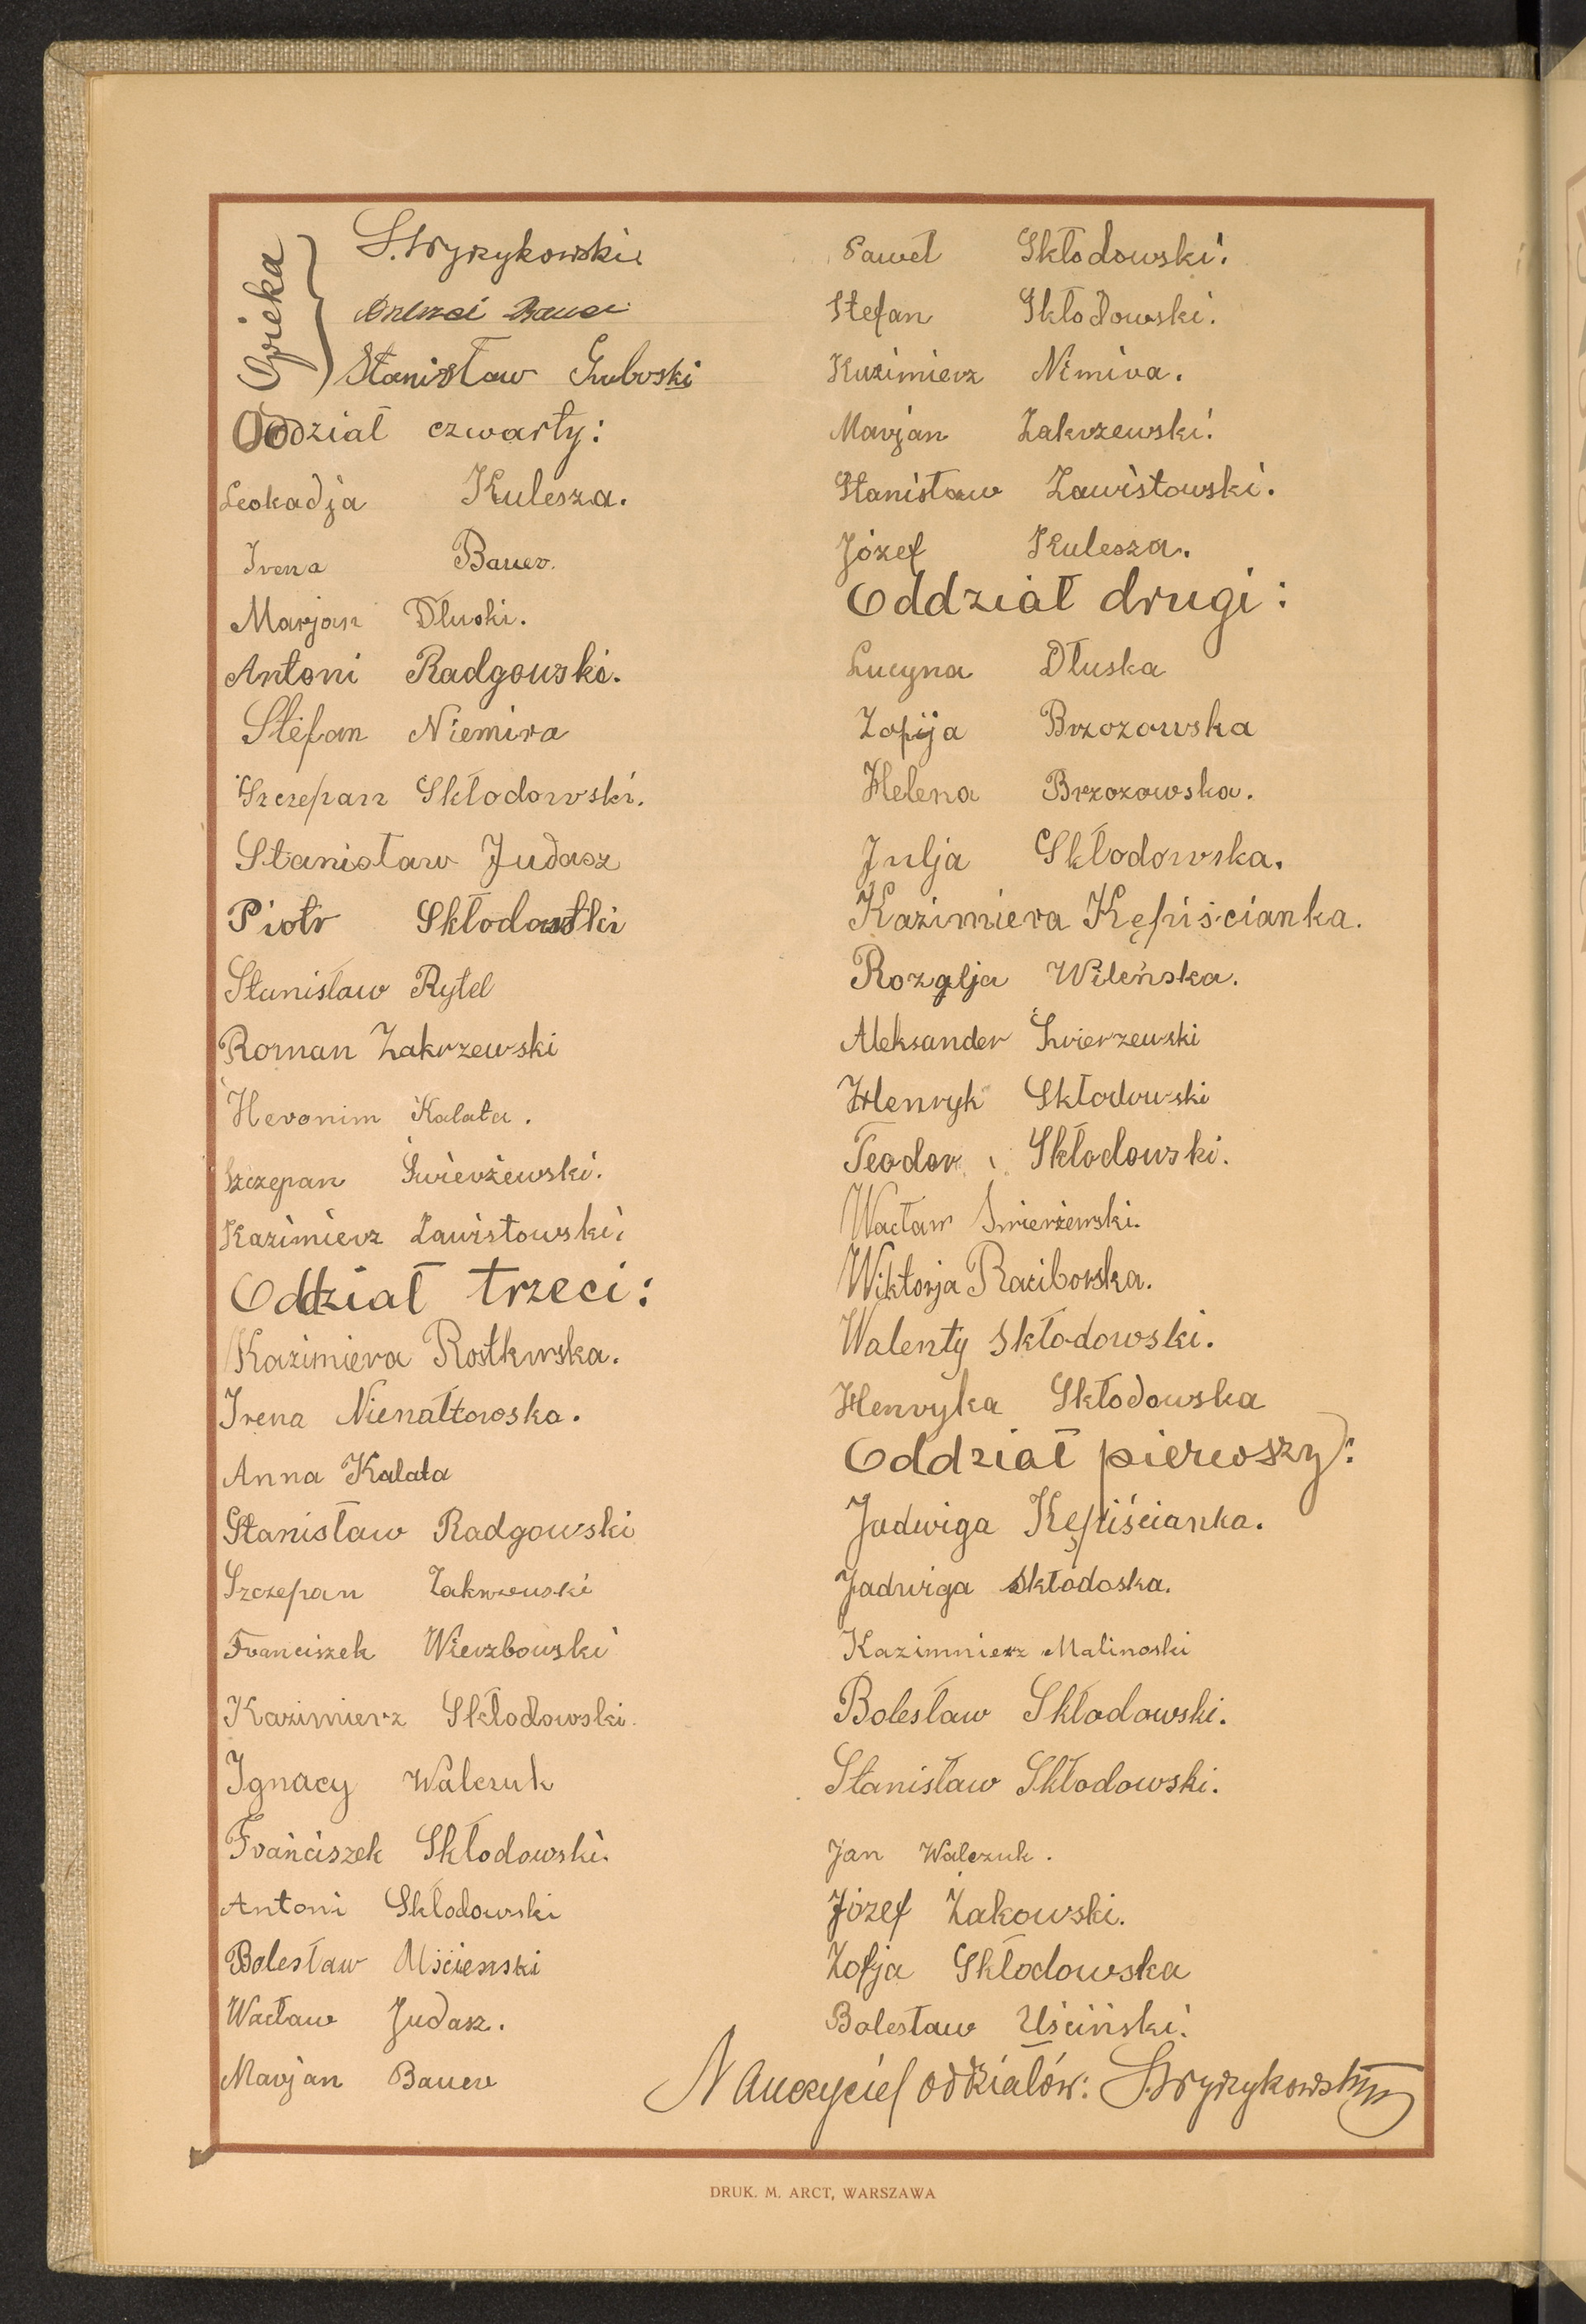 Opieka
S. Wyrzykowski
Bauer
Stanisław Grabowski
Oddział czwarty:
Leokadja Kulesza.
Irena Bauer.
Marjan Dłuski.
Antoni Radgowski.
Stefan Niemira
Szczepan Skłodowski.
Stanisław Judasz
Piotr Skłodowski
Stanisław Rytel
Roman Zakrzewski
Heronim Kalata.
Szczepan Świerżewski.
Kazimierz Zawistowski.
Oddział trzeci:
Kazimiera Rostkwska.
Irena Nienałtowska.
Anna Kalata
Stanisław Radgowski
Szczepan Zakrzewski
Franciszek Wierzbowski
Kazimierz Skłodowski.
Ignacy Walczuk
Franciszek Skłodowski.
Antoni Skłodowski
Bolesław
Wacław Judasz.
Marjan Bauer
Paweł Skłodowski.
Stefan Skłodowski.
Kazimierz Nimira.
Marjan Zakrzewski.
Stanisław Zawistowski.
Józef Kulesza.
Oddział drugi:
Lucyna Dłuska
Zofija Brzozowska
Helena Brzozowska.
Julja Skłodowska.
Kazimiera Kępiścianka.
Rozalja Wileńska.
Aleksander Świerzewski
Henryk Skłodowski
Teodor Skłodowski.
Wacław Świerżewski.
Wiktorja Raciborska.
Walenty Skłodowski.
Henryka Skłodowska
Oddział pierwszy:
Jadwiga Kępiścianka.
Jadwiga Skłodoska.
Kazimnierz Malinoski
Bolesław Skłodowski.
Stanisław Skłodowski.
Jan Walczuk.
Józef Żakowski.
Zofja Skłodowska
Bolesław Uściński.
Nauczyciel oddziałów: S. Wyrzykowski
DRUK. M. ARCT, WARSZAWA